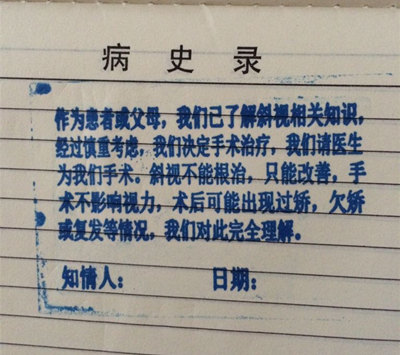 病史录
作为患者或父母，我们已了解斜视相关知识，
经过慎重考虑，我们决定手术治疗，我们请医生
为我们手术。斜视不能根治，只能改善，手
术不影响视力，术后可能出现过矫，欠矫
或复发等情况，我们对此完全理解。
知情人：日期：